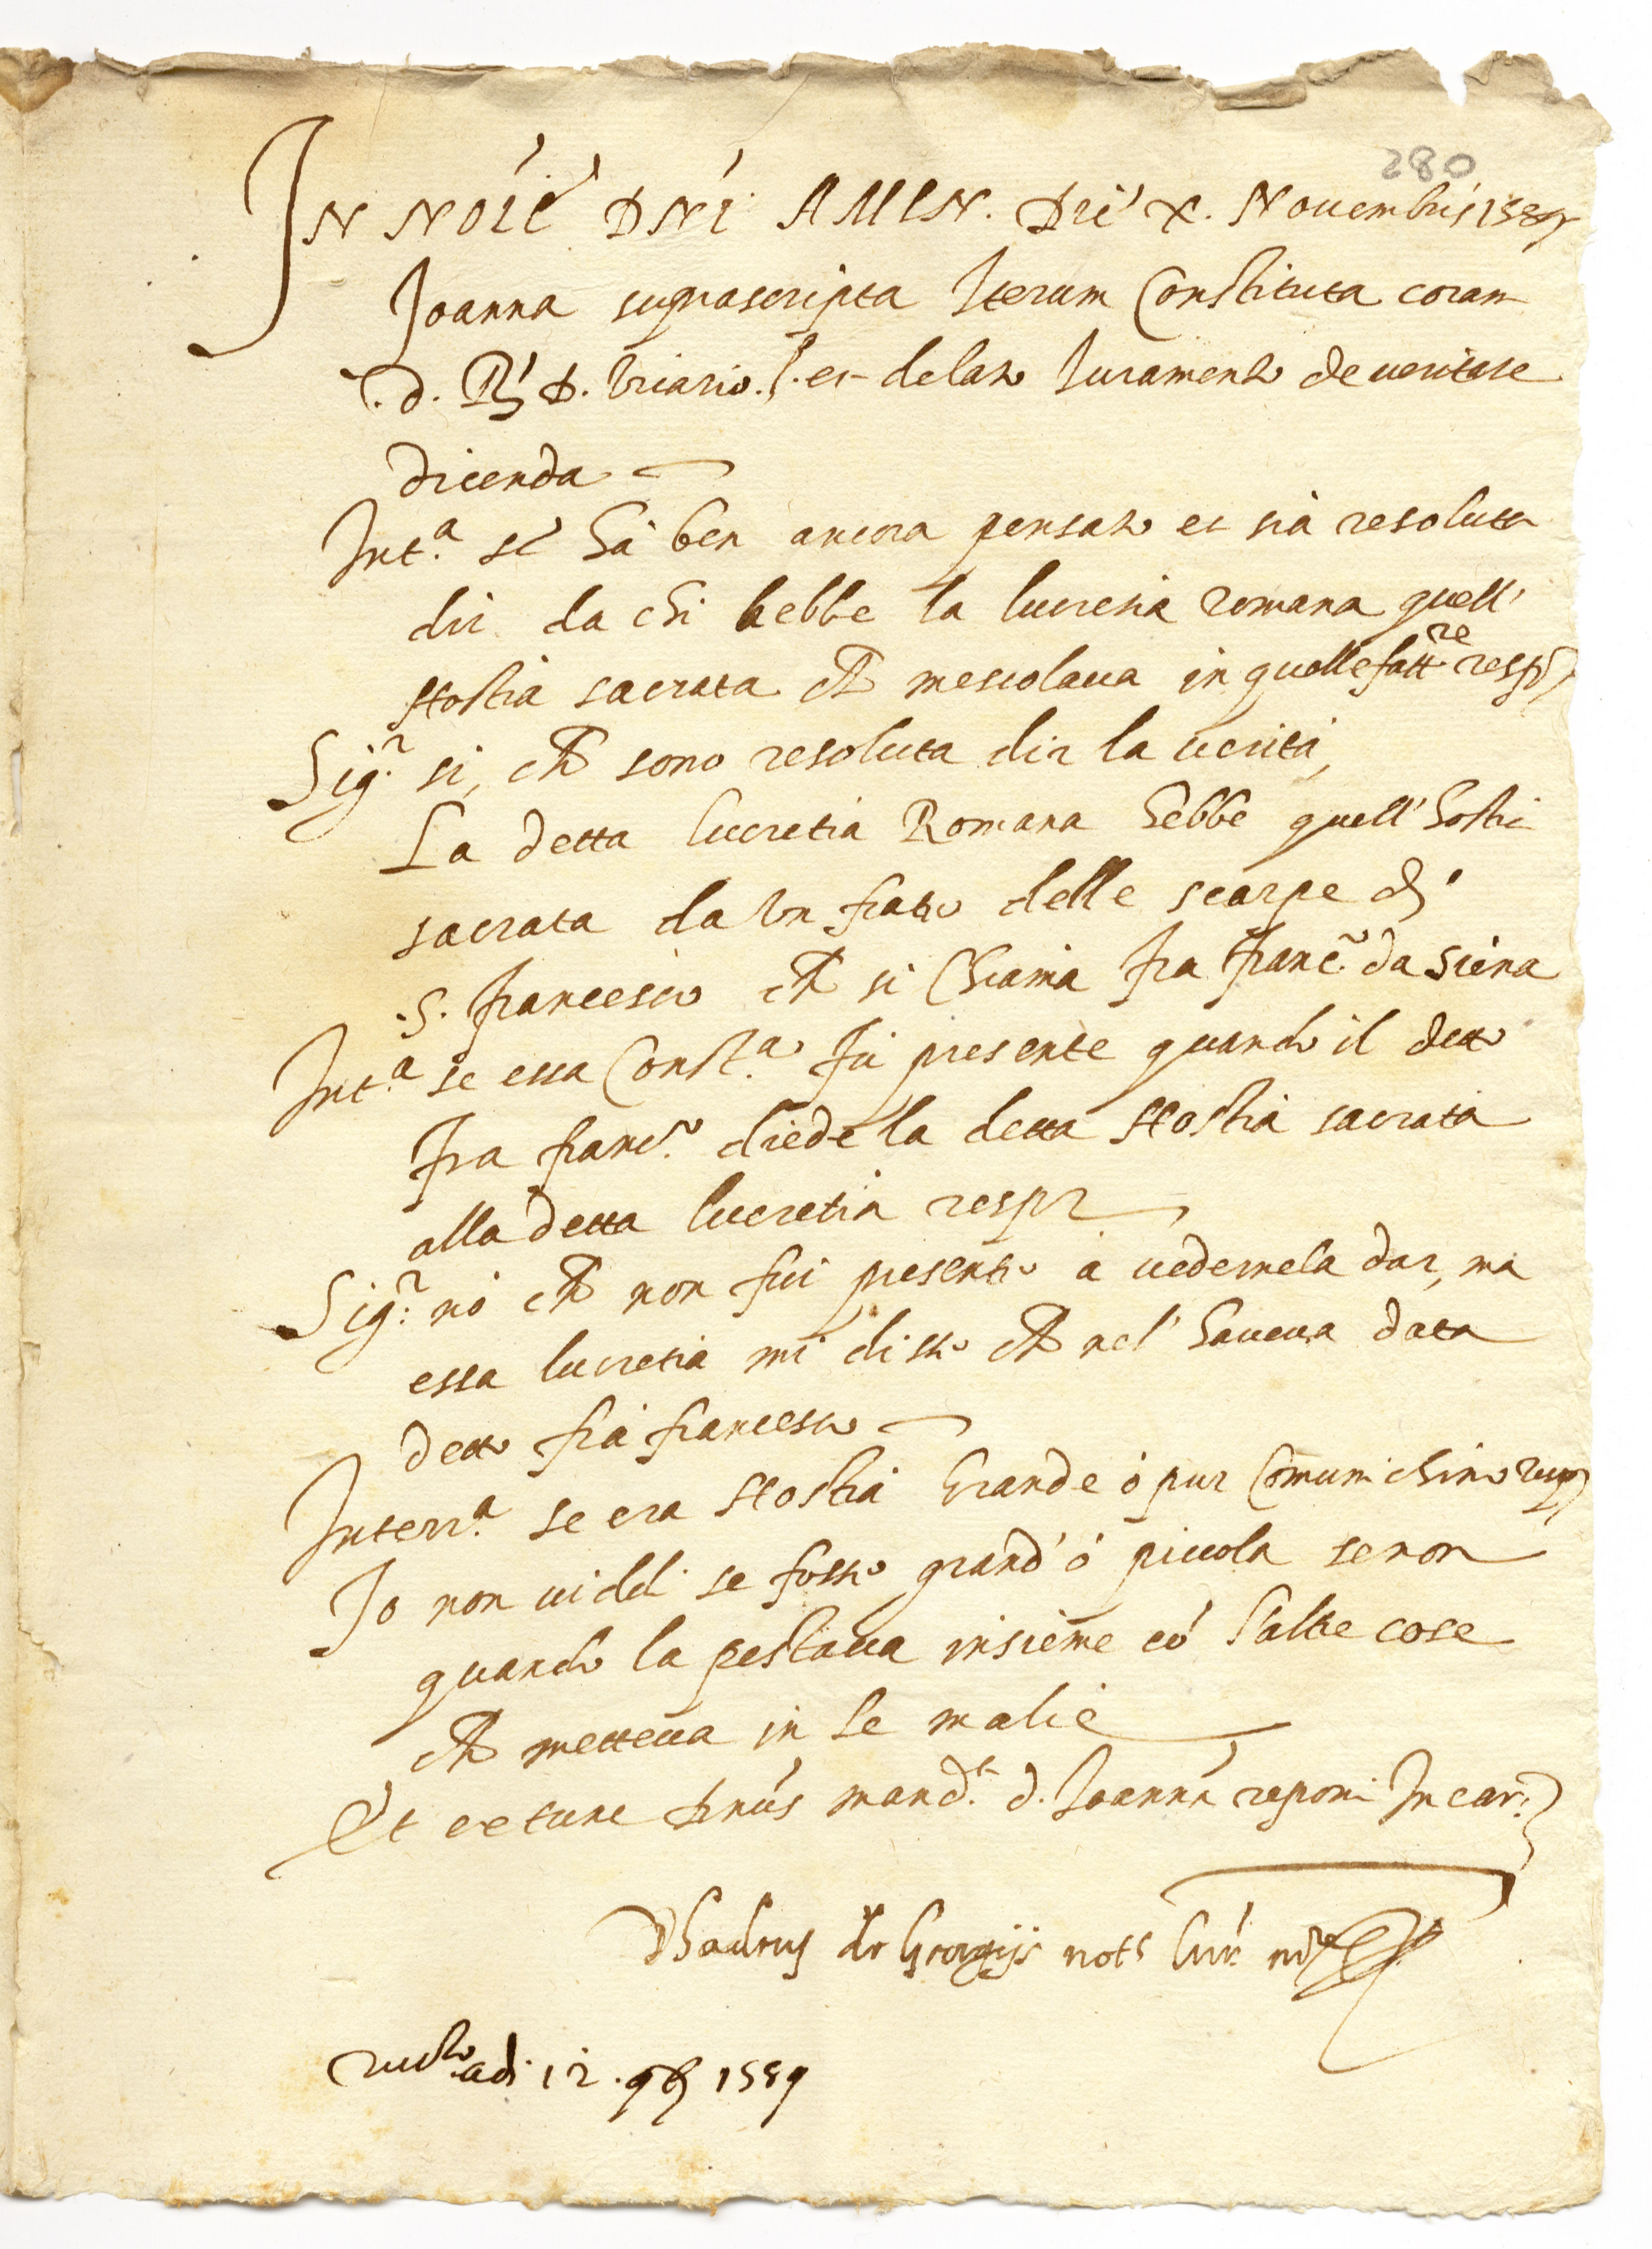 280
IN NOIE DNI AMEN. Die X. Novembris 1589
Joanna suprascripta Iterum Constituta coram
.d. R. D. Vicario. et delato Iuramento de veritate
dicenda
Int.ª se hà ben ancora pensato et sia resoluta
dir da chi hebbe la lucretia romana quell'
Hostia sacrata che mescolava in quelle fatt.re resp.
Sig.r si, che sono resoluta dir la verità,
La detta lucretia Romana hebbe quell'hosti
sacrata da un frate delle scarpe di
.S. francesco che si Chiama fra franc.o da Siena
Int.ª se essa Const.ª fu presente quando il detto
fra franc.o diede la detta Hostia sacrata
alla detta lucretia resp.
Sig.r nò che non fui presente a vedernela dar, ma
essa lucretia mi disse che nel' haveva data
detto frà francesco
Interr.ª se era Hostia Grande ò pur Comunichino resp.
Io non viddi se fosse grand' ò piccola se non
quando la pestava insieme cò l'altre cose
che metteva in le malie
Et ex tunc Dnus mand.t d. Joannà reponi In car.
de Georgijs not.s
adi 12. 9b 1589